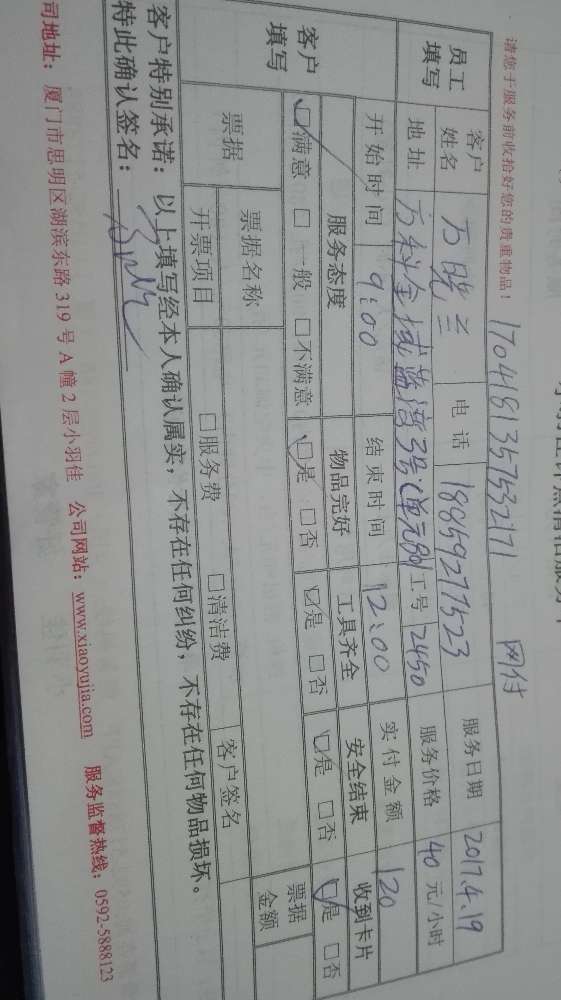 170418135753217 1
网付
请您于服务前收拾好您的贵重物品！
员工填写 客户姓名 万晓兰 电话 18859277523 服务日期 2017.4.19
地址 万科金域蓝湾3号 工号 2450 服务价格 40 元/小时
开始时间 9:00 结束时间 12:00 实付金额 120
客户填写 服务态度 物品完好 工具齐全 安全结束 收到卡片
☑满意 □一般 □不满意 ☑是 □否 ☑是 □否 ☑是 □否 ☑是 □否
票据 票据名称 票据金额
开票项目 □服务费 □清洁费 客户签名
客户特别承诺：以上填写经本人确认属实，不存在任何纠纷，不存在任何物品损坏。
特此确认签名：
司地址：厦门市思明区湖滨东路 319 号 A 幢 2 层小羽佳 公司网站：www.xiaoyujia.com 服务监督热线：0592-5888123